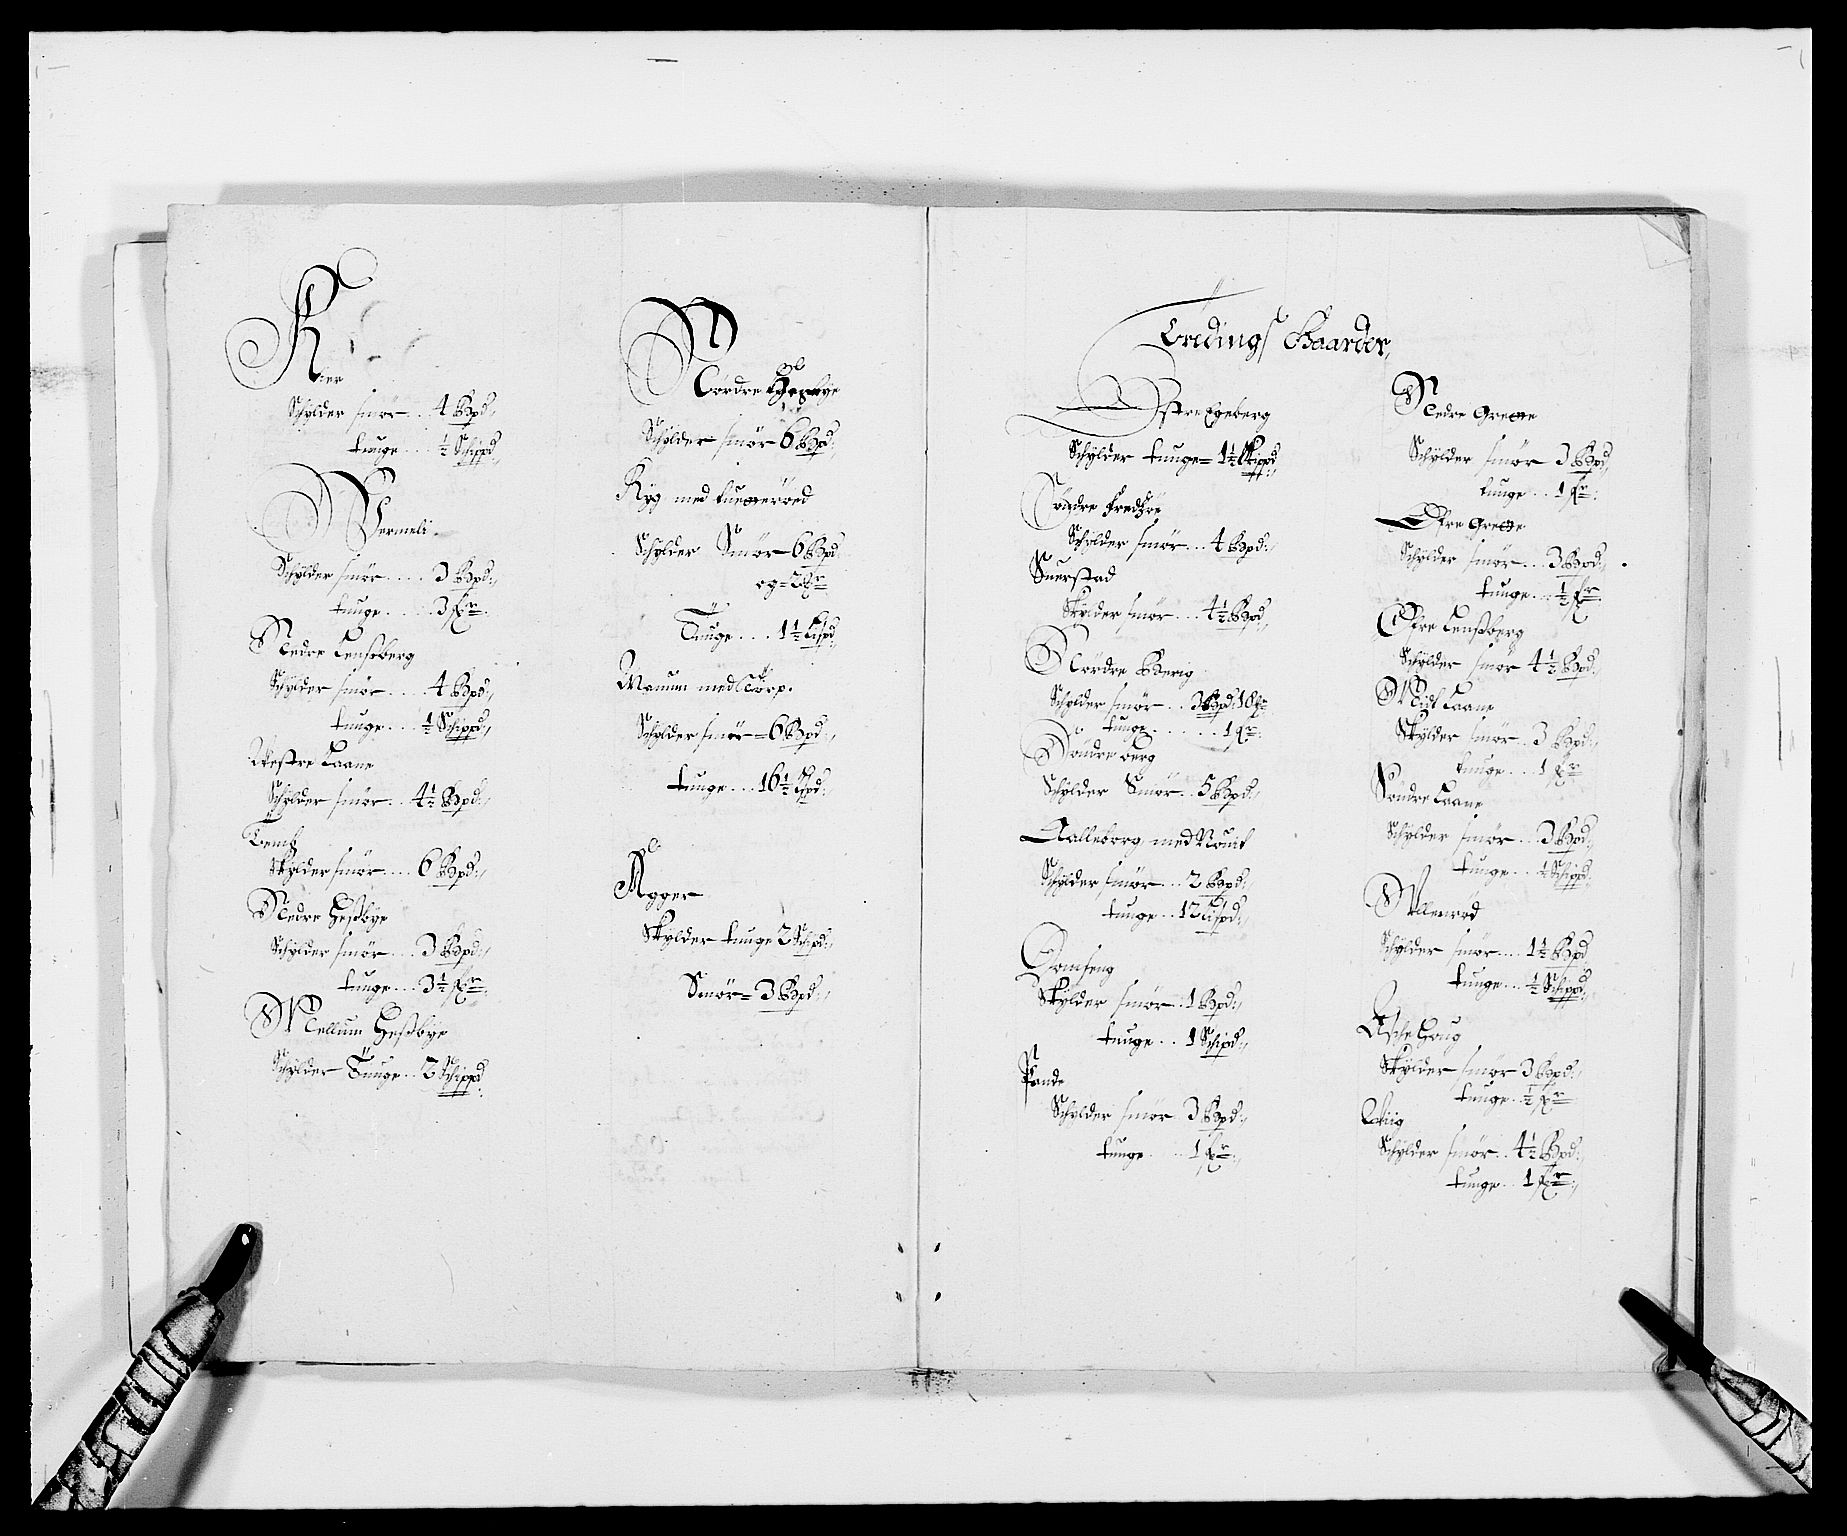 Kier
Schylder smör .. 4 Bpd:,
tunge ... ½ Schippd:,
Vermeli.
Schylder smör .... 3 Bpd:,
tunge .... 3 fr:
Nedre Lensberg
Schylder smör .... 4 Bpd:,
tunge ... ½ Schippd:,
Westre Laane
Schylder smör ... 4½ Bpd:,
Skylder smör .... 6 Bpd:,
Nedre Hessbye
Schylder smör .... 3 Bpd:,
tunge ... 3½ fr:
Mellum Hessbye
Schylder Tunge .. 2 Schippd:
Nordre
Schylder smör 6 Bpd:,
Ryg med
Schylder Smör 6 Bpd:
og = 2
Tunge .... 1½ Lispd:,
Manum med Torp.
Schylder smör = 6 Bpd:,
tunge ... 16½ Lispd:,
Agger
Skylder tunge 2 Schipd:,
Smör = 3 Bpd:,
Ördings Gaarder,
Östre Egeberg
Schylder tunge = 1½ Skippd:,
Söndre
Schylder smör ... 4 Bpd:,
Suerstad
Skylder smör ... 4½ Bpd:,
Nordre Berig
Schylder smör .. 3 Bpd: 18
tunge ...... 1 fr:
Söndre berg
Schylder Smör .. 5 Bpd:,
Aalleborg med
Schylder smör ... 2 Bpd:,
tunge .. 12 Lispd:,
Domseng
Skylder smör . 1 Bpd:,
tunge .. 1 Schipd:,
Schylder smör 3 Bpd:,
tunge .... 1 fr:,
Nedre Grette
Schylder smör 3 Bpd:,
tunge .. 1 fr:
Öfre Grette
Schylder smör ... 3 Bpd:,
tunge ... ½ fr:
Öfre Lensberg
Schylder smör 4½ Bpd:,
Laane
Skylder smör .. 3 Bpd:,
tunge ... 1 fr:
Söndre Laane
Schylder smör ... 3 Bpd:,
tunge ... ½ Schippd:,
Ullerröd
Schylder smör ... 1½ Bpd
tunge ... ½ Schippd:,
Aschehoug
Skylder smör 3 Bpd:,
tunge . ½ fr:
Schylder smör .. 4½ Bpd:,
tunge .. 1 fr:,